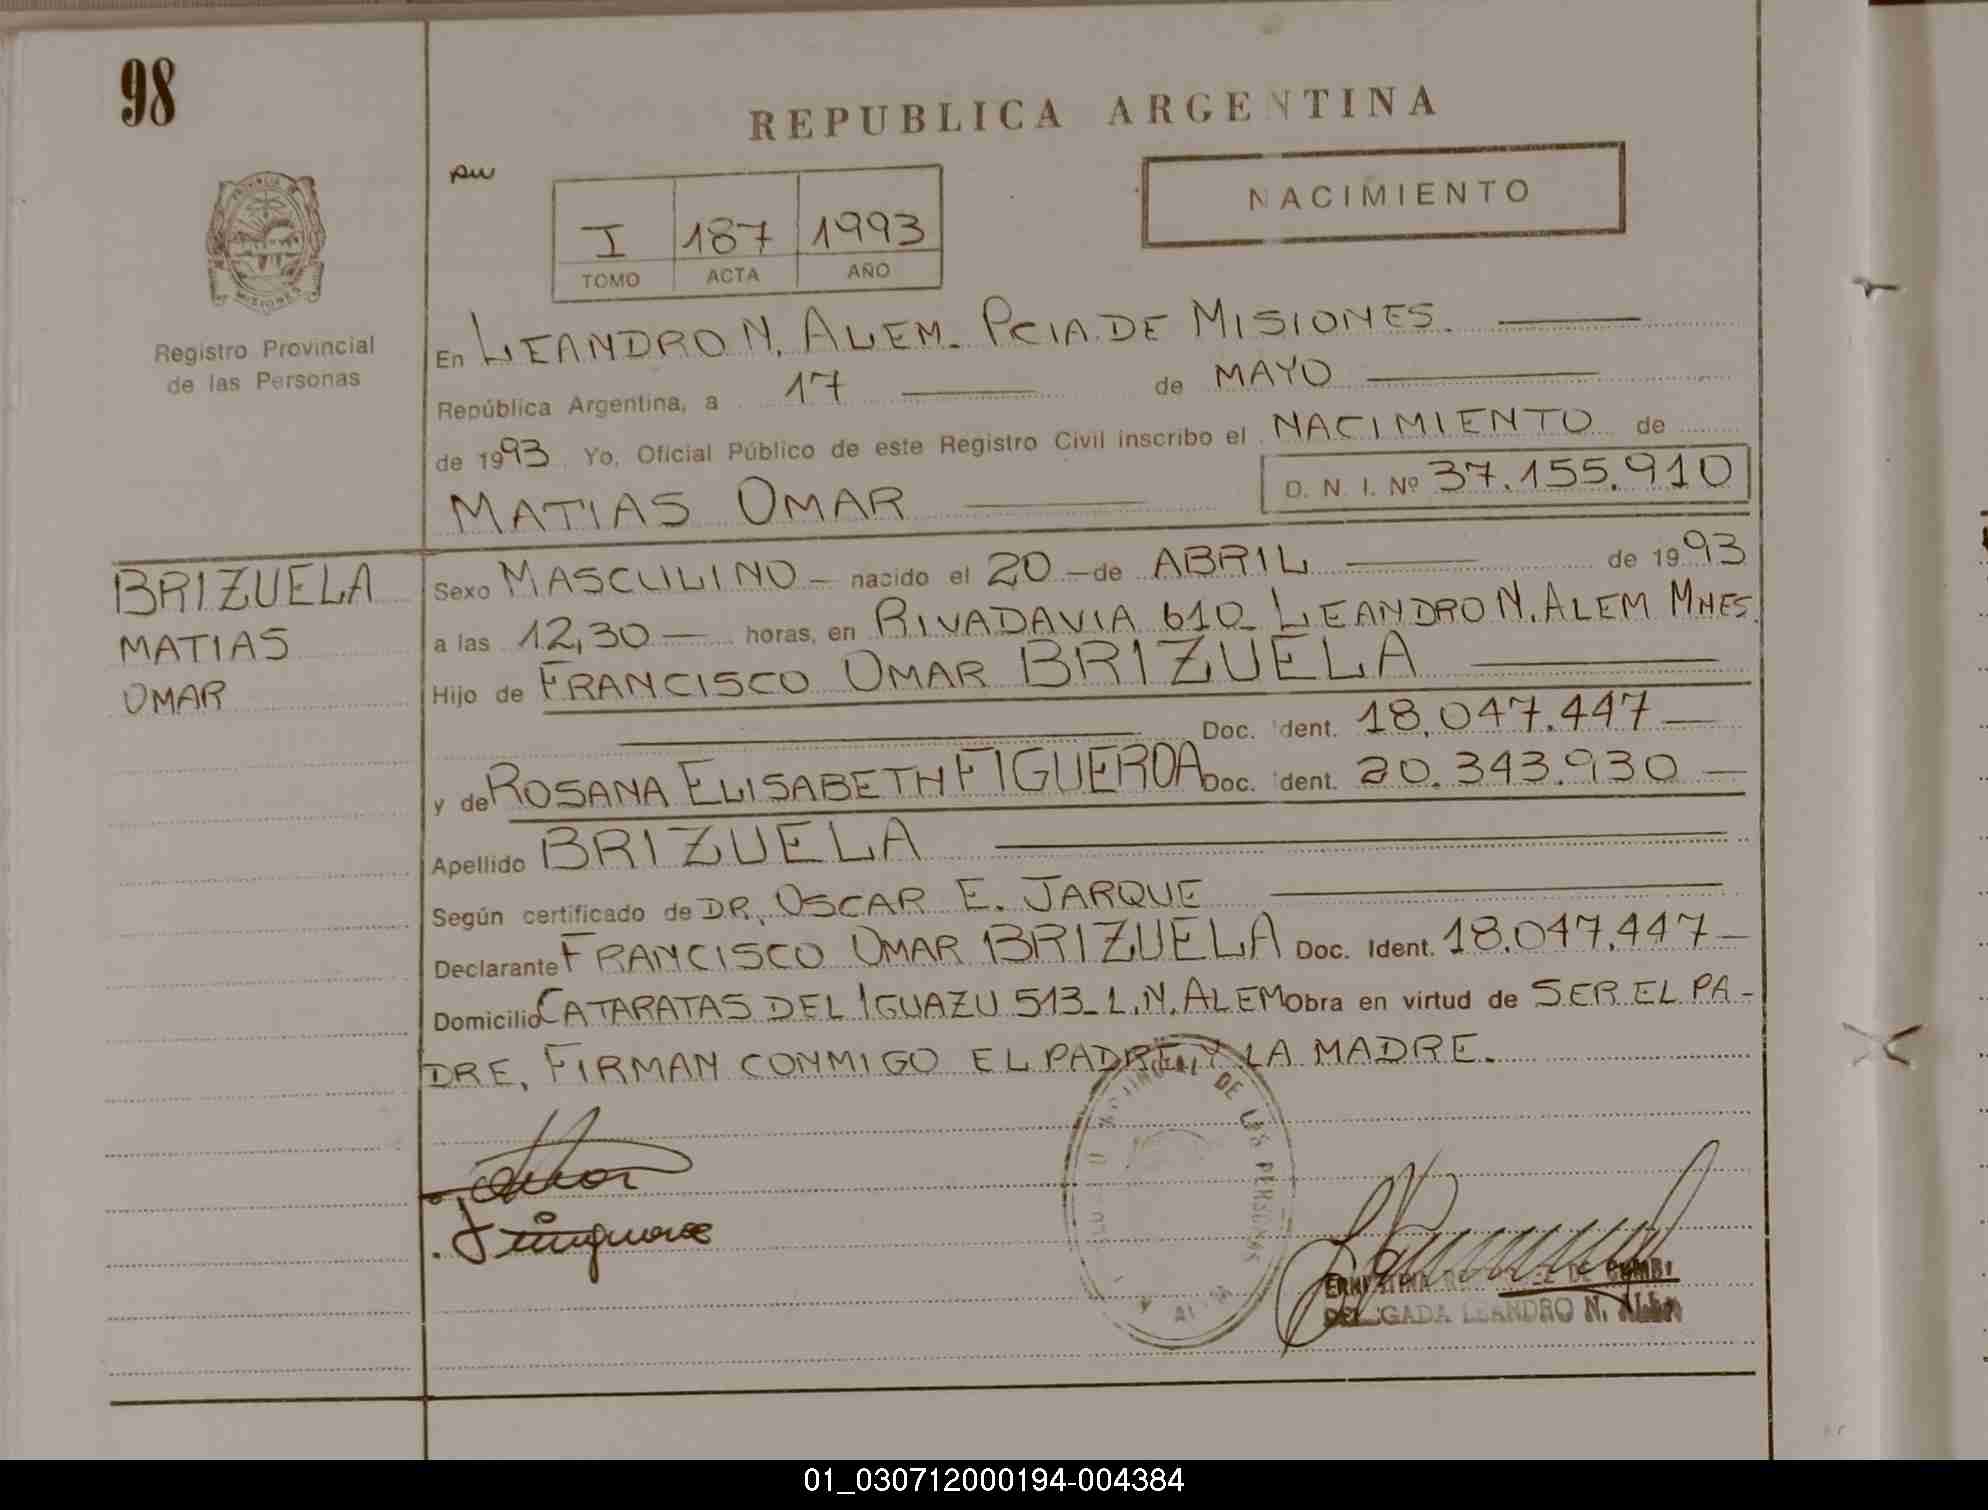 98
REPUBLICA ARGENTINA
NACIMIENTO
I 187 1993
TOMO ACTA AÑO
PROVINCIA DE
MISIONES
Registro Provincial
de las Personas
En LEANDRO N. ALEM. PCIA.DE MISIONES.
República Argentina, a 17 de MAYO
de 1993 Yo, Oficial Público de este Registro Civil inscribo el NACIMIENTO de
MATIAS OMAR D. N. I. Nº 37.155.910
BRIZUELA
MATIAS
OMAR
Sexo MASCULINO - nacido el 20 - de ABRIL de 1993
a las 12,30 - horas, en RIVADAVIA 610_ LEANDRO N. ALEM MNES.
Hijo de FRANCISCO OMAR BRIZUELA
Doc. Ident. 18.047.447 -
y de ROSANA ELISABETH FIGUEROA Doc. Ident. 20.343.930 -
Apellido BRIZUELA
Según certificado de DR. OSCAR E. JARQUE
Declarante FRANCISCO OMAR BRIZUELA Doc. Ident. 18.047.447 -
Domicilio CATARATAS DEL IGUAZU 513_ L.N. ALEM Obra en virtud de SER EL PA-
DRE, FIRMAN CONMIGO EL PADRE Y LA MADRE.
DE LAS PERSONAS
DELEGADA LEANDRO N. ALEM
01_030712000194-004384